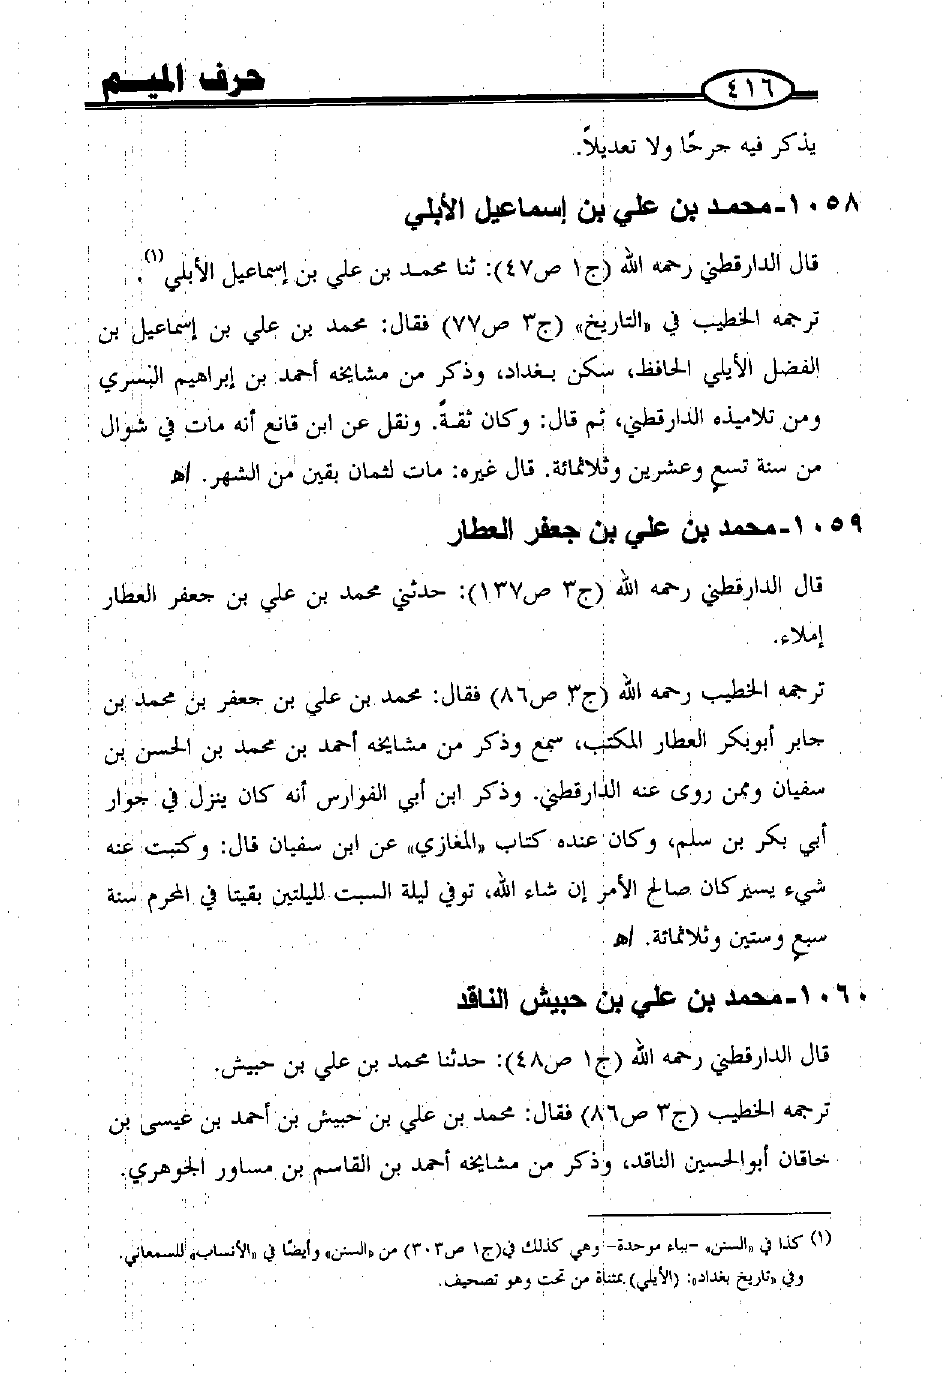 ٤١٦ حرف الميم
يذكر فيه جرحًا ولا تعديلاً.
١٠٥٨-محمد بن علي بن إسماعيل الأبلي
قال الدارقطني رحمه الله (ج١ ص٤٧): ثنا محمد بن علي بن إسماعيل الأبلي(١).
ترجمه الخطيب في «التاريخ» (ج٣ ص٧٧) فقال: محمد بن علي بن إسماعيل بن
الفضل الأيلي الحافظ، سكن بغداد، وذكر من مشايخه أحمد بن إبراهيم البسري
ومن تلاميذه الدارقطني، ثم قال: وكان ثقةً. ونقل عن ابن قانع أنه مات في شوال
من سنة تسعٍ وعشرين وثلاثمائة. قال غيره: مات لثمان بقين من الشهر. اهـ
١٠٥٩-محمد بن علي بن جعفر العطار
قال الدارقطني رحمه الله (ج٣ ص١٣٧): حدثني محمد بن علي بن جعفر العطار
إملاء.
ترجمه الخطيب رحمه الله (ج٣ ص٨٦) فقال: محمد بن علي بن جعفر بن محمد بن
جابر أبوبكر العطار المكتب، سمع وذكر من مشايخه أحمد بن محمد بن الحسن بن
سفيان وممن روى عنه الدارقطني. وذكر ابن أبي الفوارس أنه كان ينزل في جوار
أبي بكر بن سلم، وكان عنده كتاب «المغازي» عن ابن سفيان قال: وكتبت عنه
شيء يسير كان صالح الأمر إن شاء الله، توفي ليلة السبت لليلتين بقيتا في المحرم سنة
سبعٍ وستين وثلاثمائة. اهـ
١٠٦٠-محمد بن علي بن حبيش الناقد
قال الدارقطني رحمه الله (ج١ ص٤٨): حدثنا محمد بن علي بن حبيش.
ترجمه الخطيب (ج٣ ص٨٦) فقال: محمد بن علي بن حبيش بن أحمد بن عيسى بن
خاقان أبوالحسين الناقد، وذكر من مشايخه أحمد بن القاسم بن مساور الجوهري.
(١) كذا في «السنن» -بباء موحدة- وهي كذلك في(ج١ ص٣٠٣) من «السنن» وأيضًا في «الأنساب» للسمعاني.
وفي «تاريخ بغداد»: (الأيلي) بمثناة من تحت وهو تصحيف.